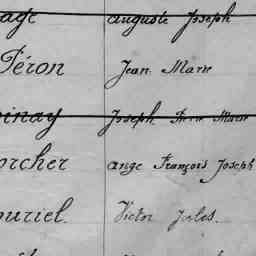 age Auguste Joseph
Péron Jean Marie
inay Joseph Pierre Marie
orcher Ange François Joseph
ouriel Victor Jules.